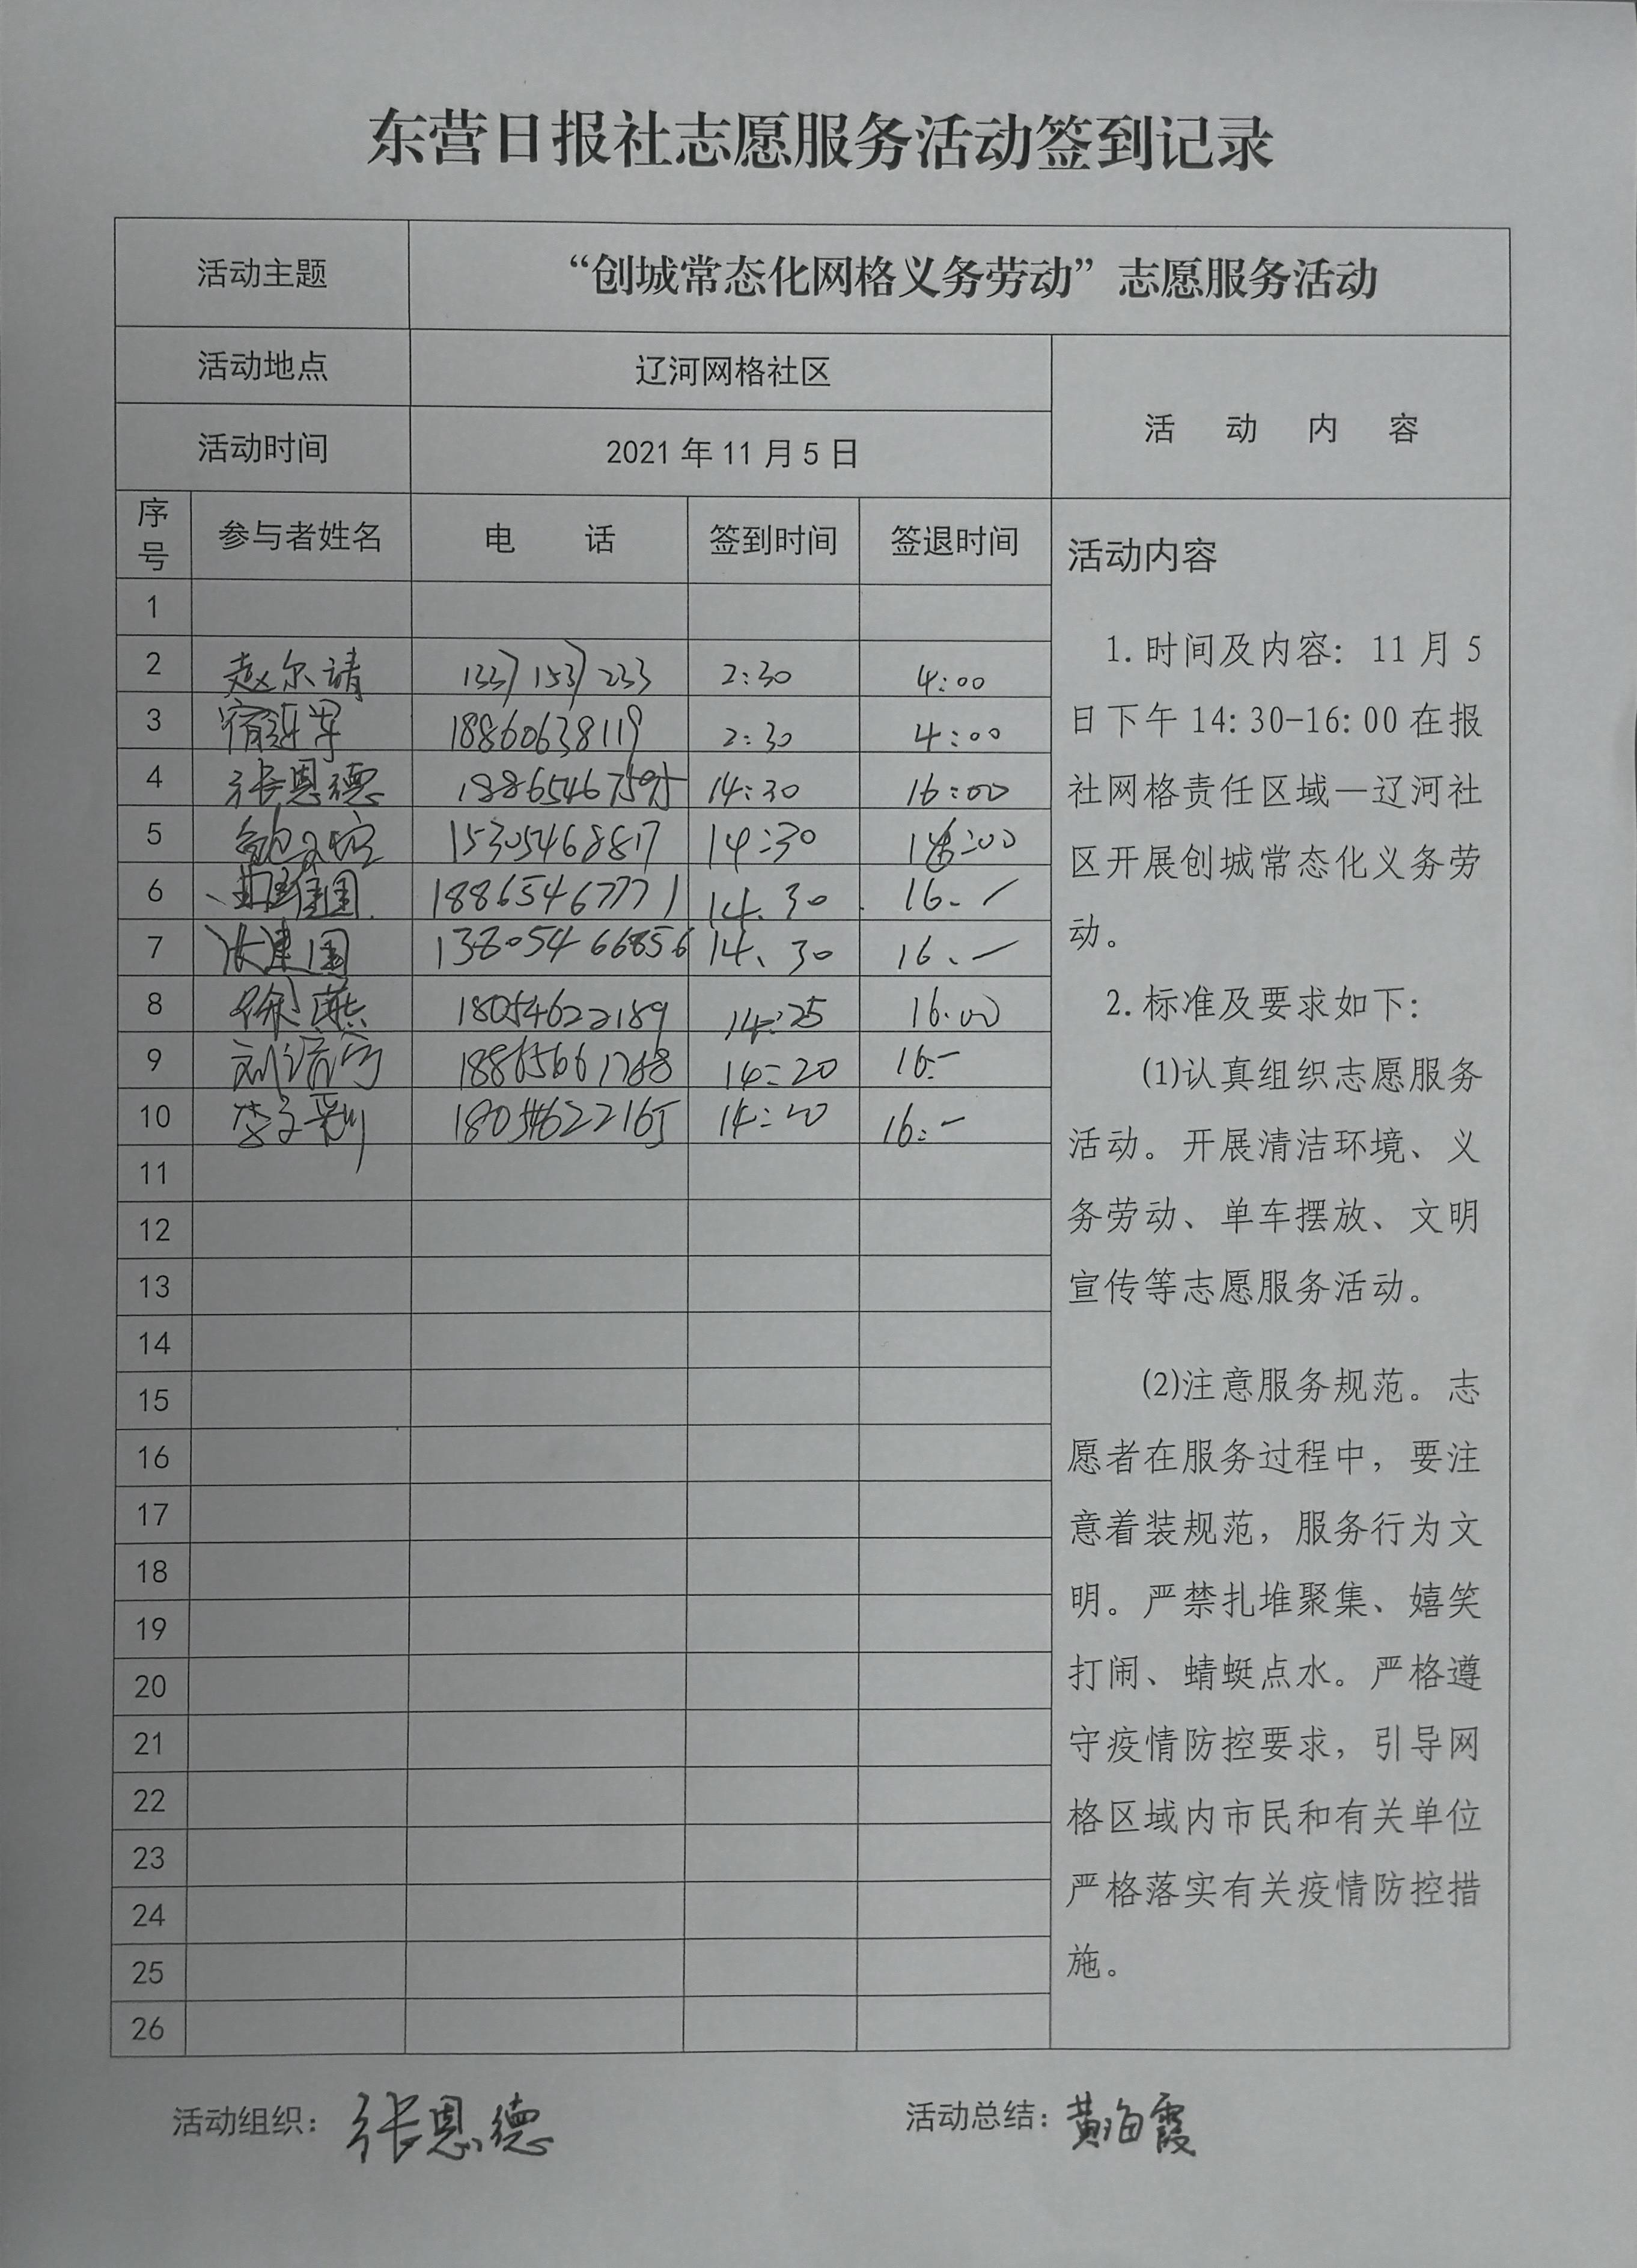 东营日报社志愿服务活动签到记录
活动主题 “创城常态化网格义务劳动”志愿服务活动
活动地点 辽河网格社区
活动时间 2021年11月5日
活 动 内 容
序号 参与者姓名 电 话 签到时间 签退时间
1
2 13371537233 2:30 4:00
3 18860638119 2:30 4:00
4 张恩德 18865467595 14:30 16:00
5 15305468817 14:30
6 18865467771 14.30 16.-
7 张建国 13805466856 14、30 16、-
8 徐燕 18054622189 14:25 16.00
9 18865661768 14:20 16:-
10 18054622165 14:20 16:-
11
12
13
14
15
16
17
18
19
20
21
22
23
24
25
26
活动内容
1.时间及内容：11月5
日下午14:30-16:00在报
社网格责任区域—辽河社
区开展创城常态化义务劳
动。
2.标准及要求如下：
(1)认真组织志愿服务
活动。开展清洁环境、义
务劳动、单车摆放、文明
宣传等志愿服务活动。
(2)注意服务规范。志
愿者在服务过程中，要注
意着装规范，服务行为文
明。严禁扎堆聚集、嬉笑
打闹、蜻蜓点水。严格遵
守疫情防控要求，引导网
格区域内市民和有关单位
严格落实有关疫情防控措
施。
活动组织：张恩德 活动总结：黄海霞